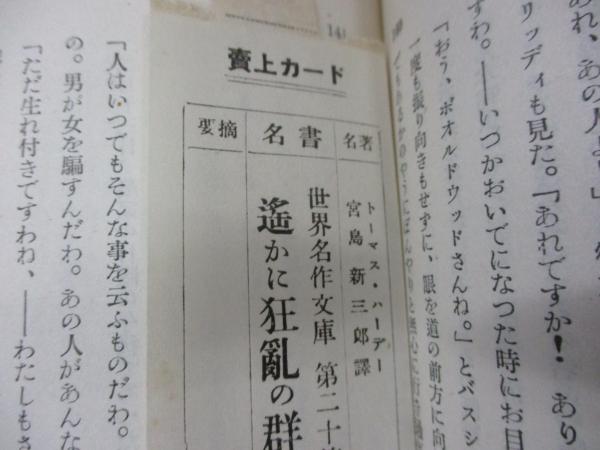 あれ、あの人よ」
リッディも見た。「あれですか! あり
すわ。――いつかおいでになつた時にお目
「おう、ボオルドウッドさんね。」とバスシ
一度も振り向きもせずに、眼を道の前方に向
14
賣上カード
著名
トーマス・ハーデー
宮島新三郎譯
書名
世界名作文庫 第二十
遙かに狂亂の群
摘要
「人はいつでもそんな事を云ふものだわ。
の。男が女を騙すんだわ。あの人があんな
「ただ生れ付きですわね、――わたしもさ